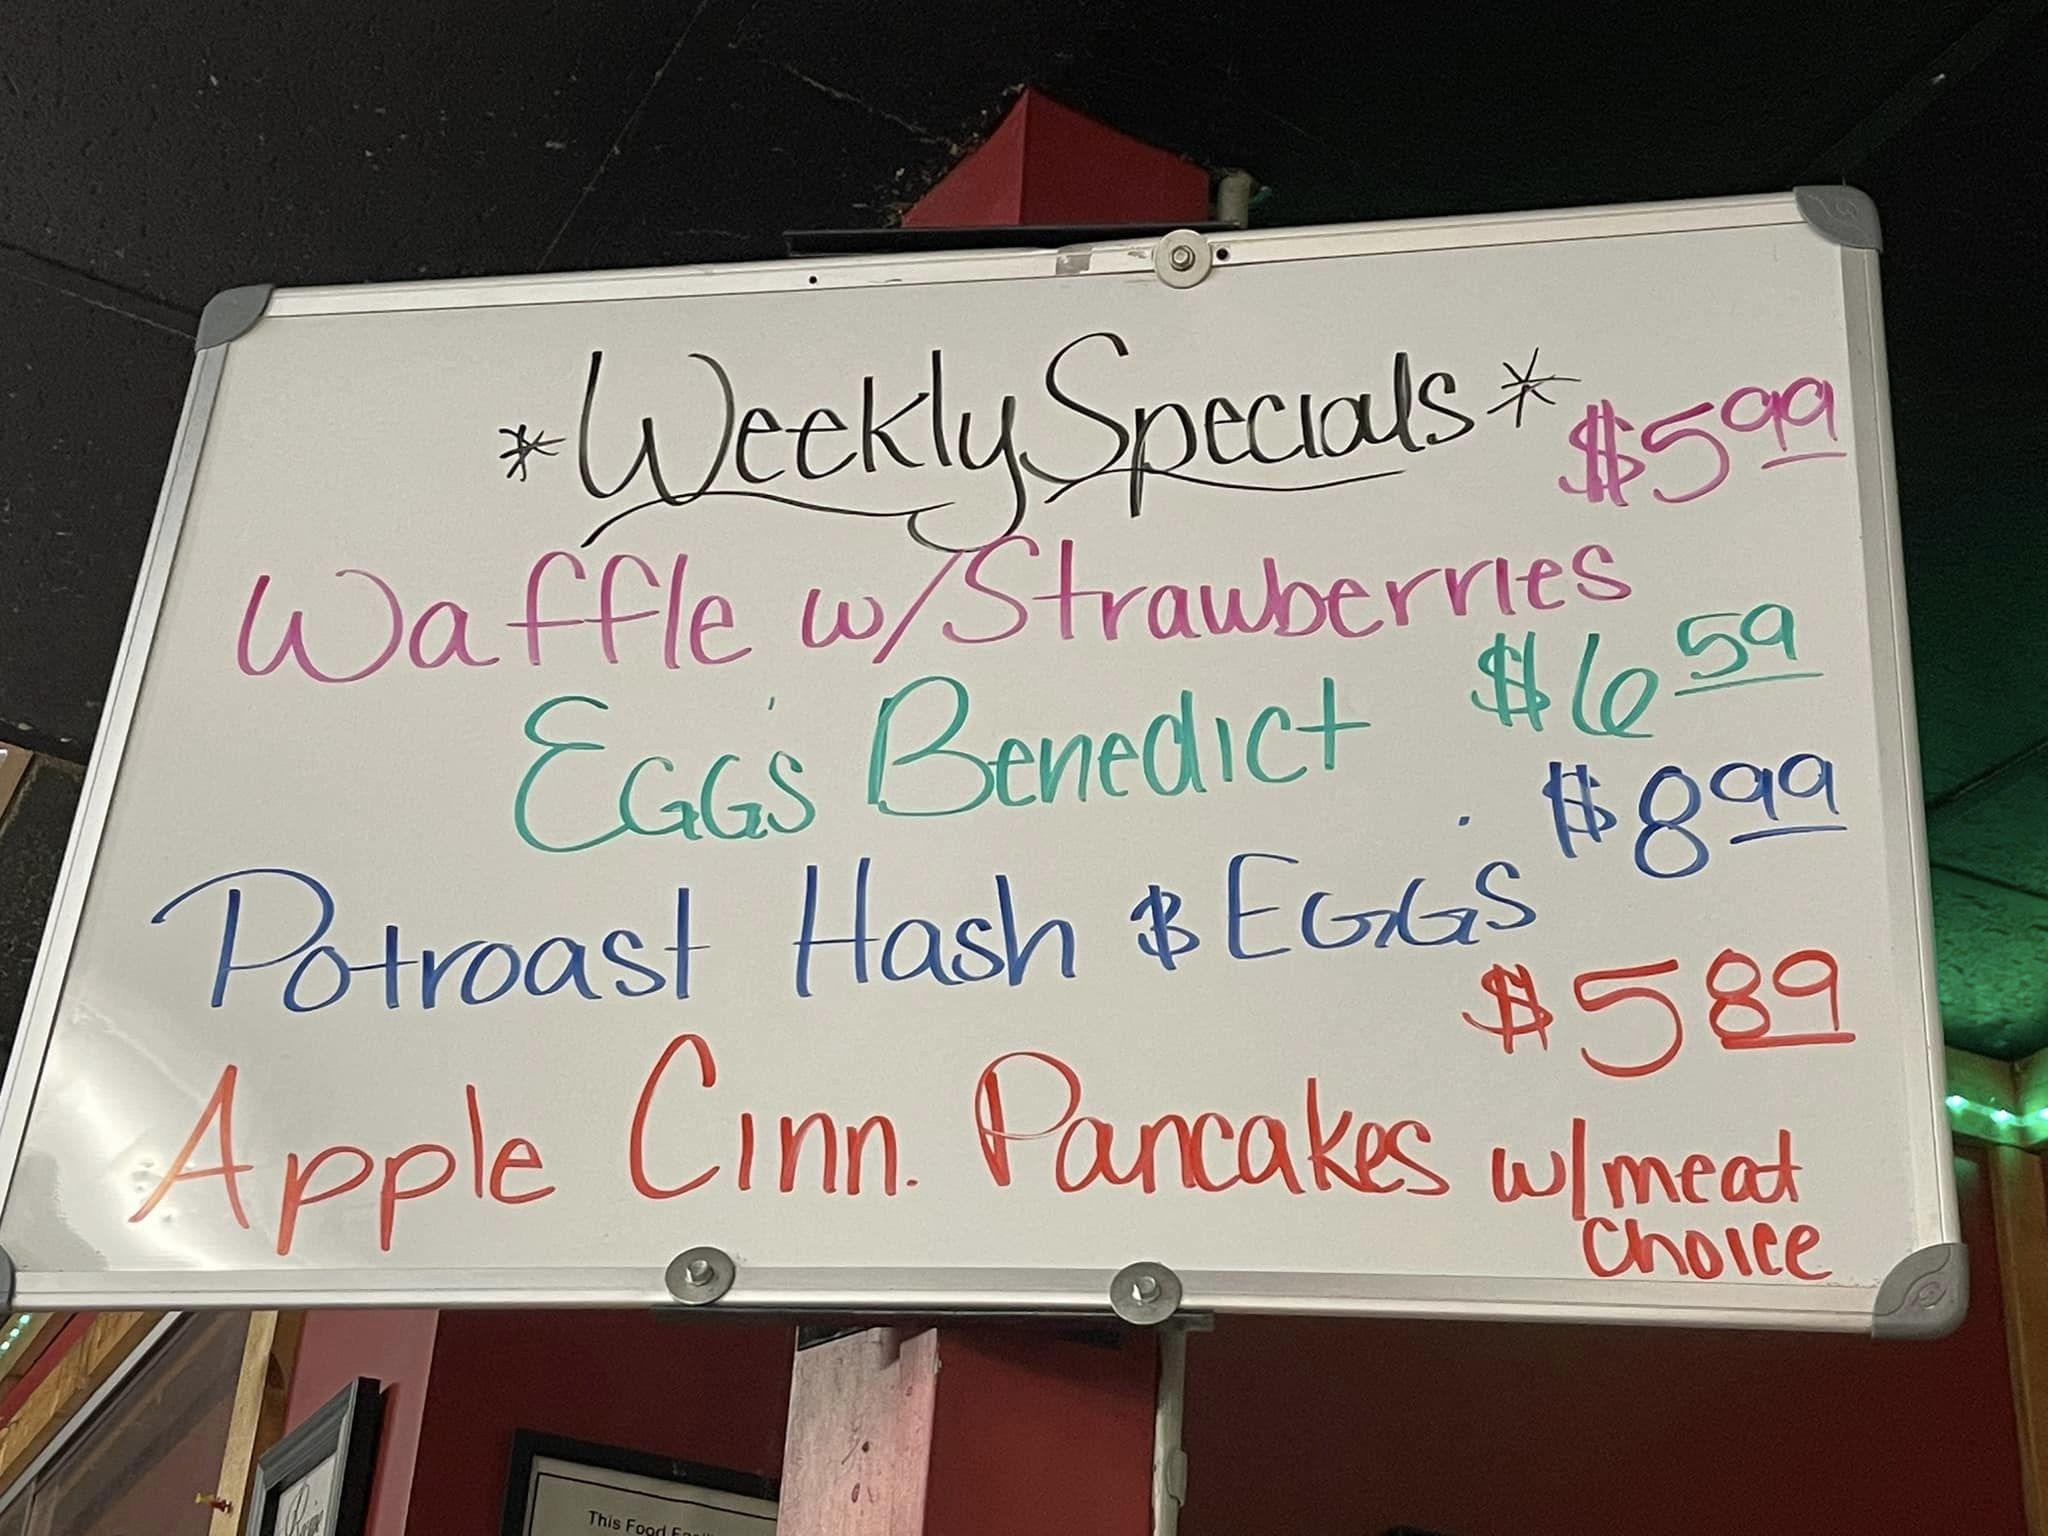 *Weekly Specials*
$5.99
Waffle w/Strawberries
$6.59
Eggs Benedict
$8.99
Potroast Hash & Eggs
$5.89
Apple Cinn. Pancakes w/meat
choice
This Food